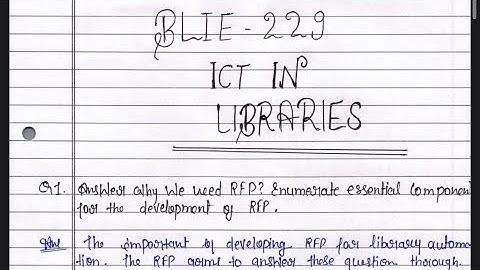 BLIE - 229
ICT IN
LIBRARIES
Q1. Answer why we need RFP? Enumerate essential component
for the development of RFP.
Ans The important of developing RFP for library automa-
tion. The RFP aoms to answer these question thorough.